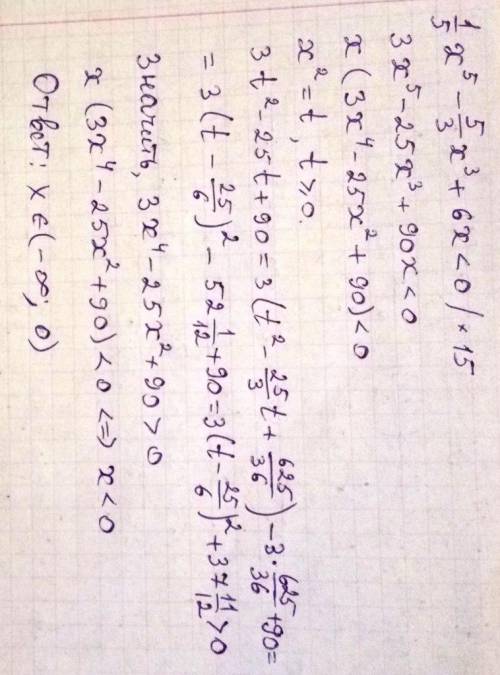 1/5 x⁵ - 5/3 x³ + 6x < 0 / × 15
3x⁵ - 25x³ + 90x < 0
x (3x⁴ - 25x² + 90) < 0
x² = t, t ≥ 0.
3t² - 25t + 90 = 3 (t² - 25/3 t + 625/36) - 3 · 625/36 + 90 =
= 3 (t - 25/6)² - 52 1/12 + 90 = 3 (t - 25/6)² + 37 11/12 > 0
Значить, 3x⁴ - 25x² + 90 > 0
x (3x⁴ - 25x² + 90) < 0 <=> x < 0
Ответ: x ∈ (-∞; 0)